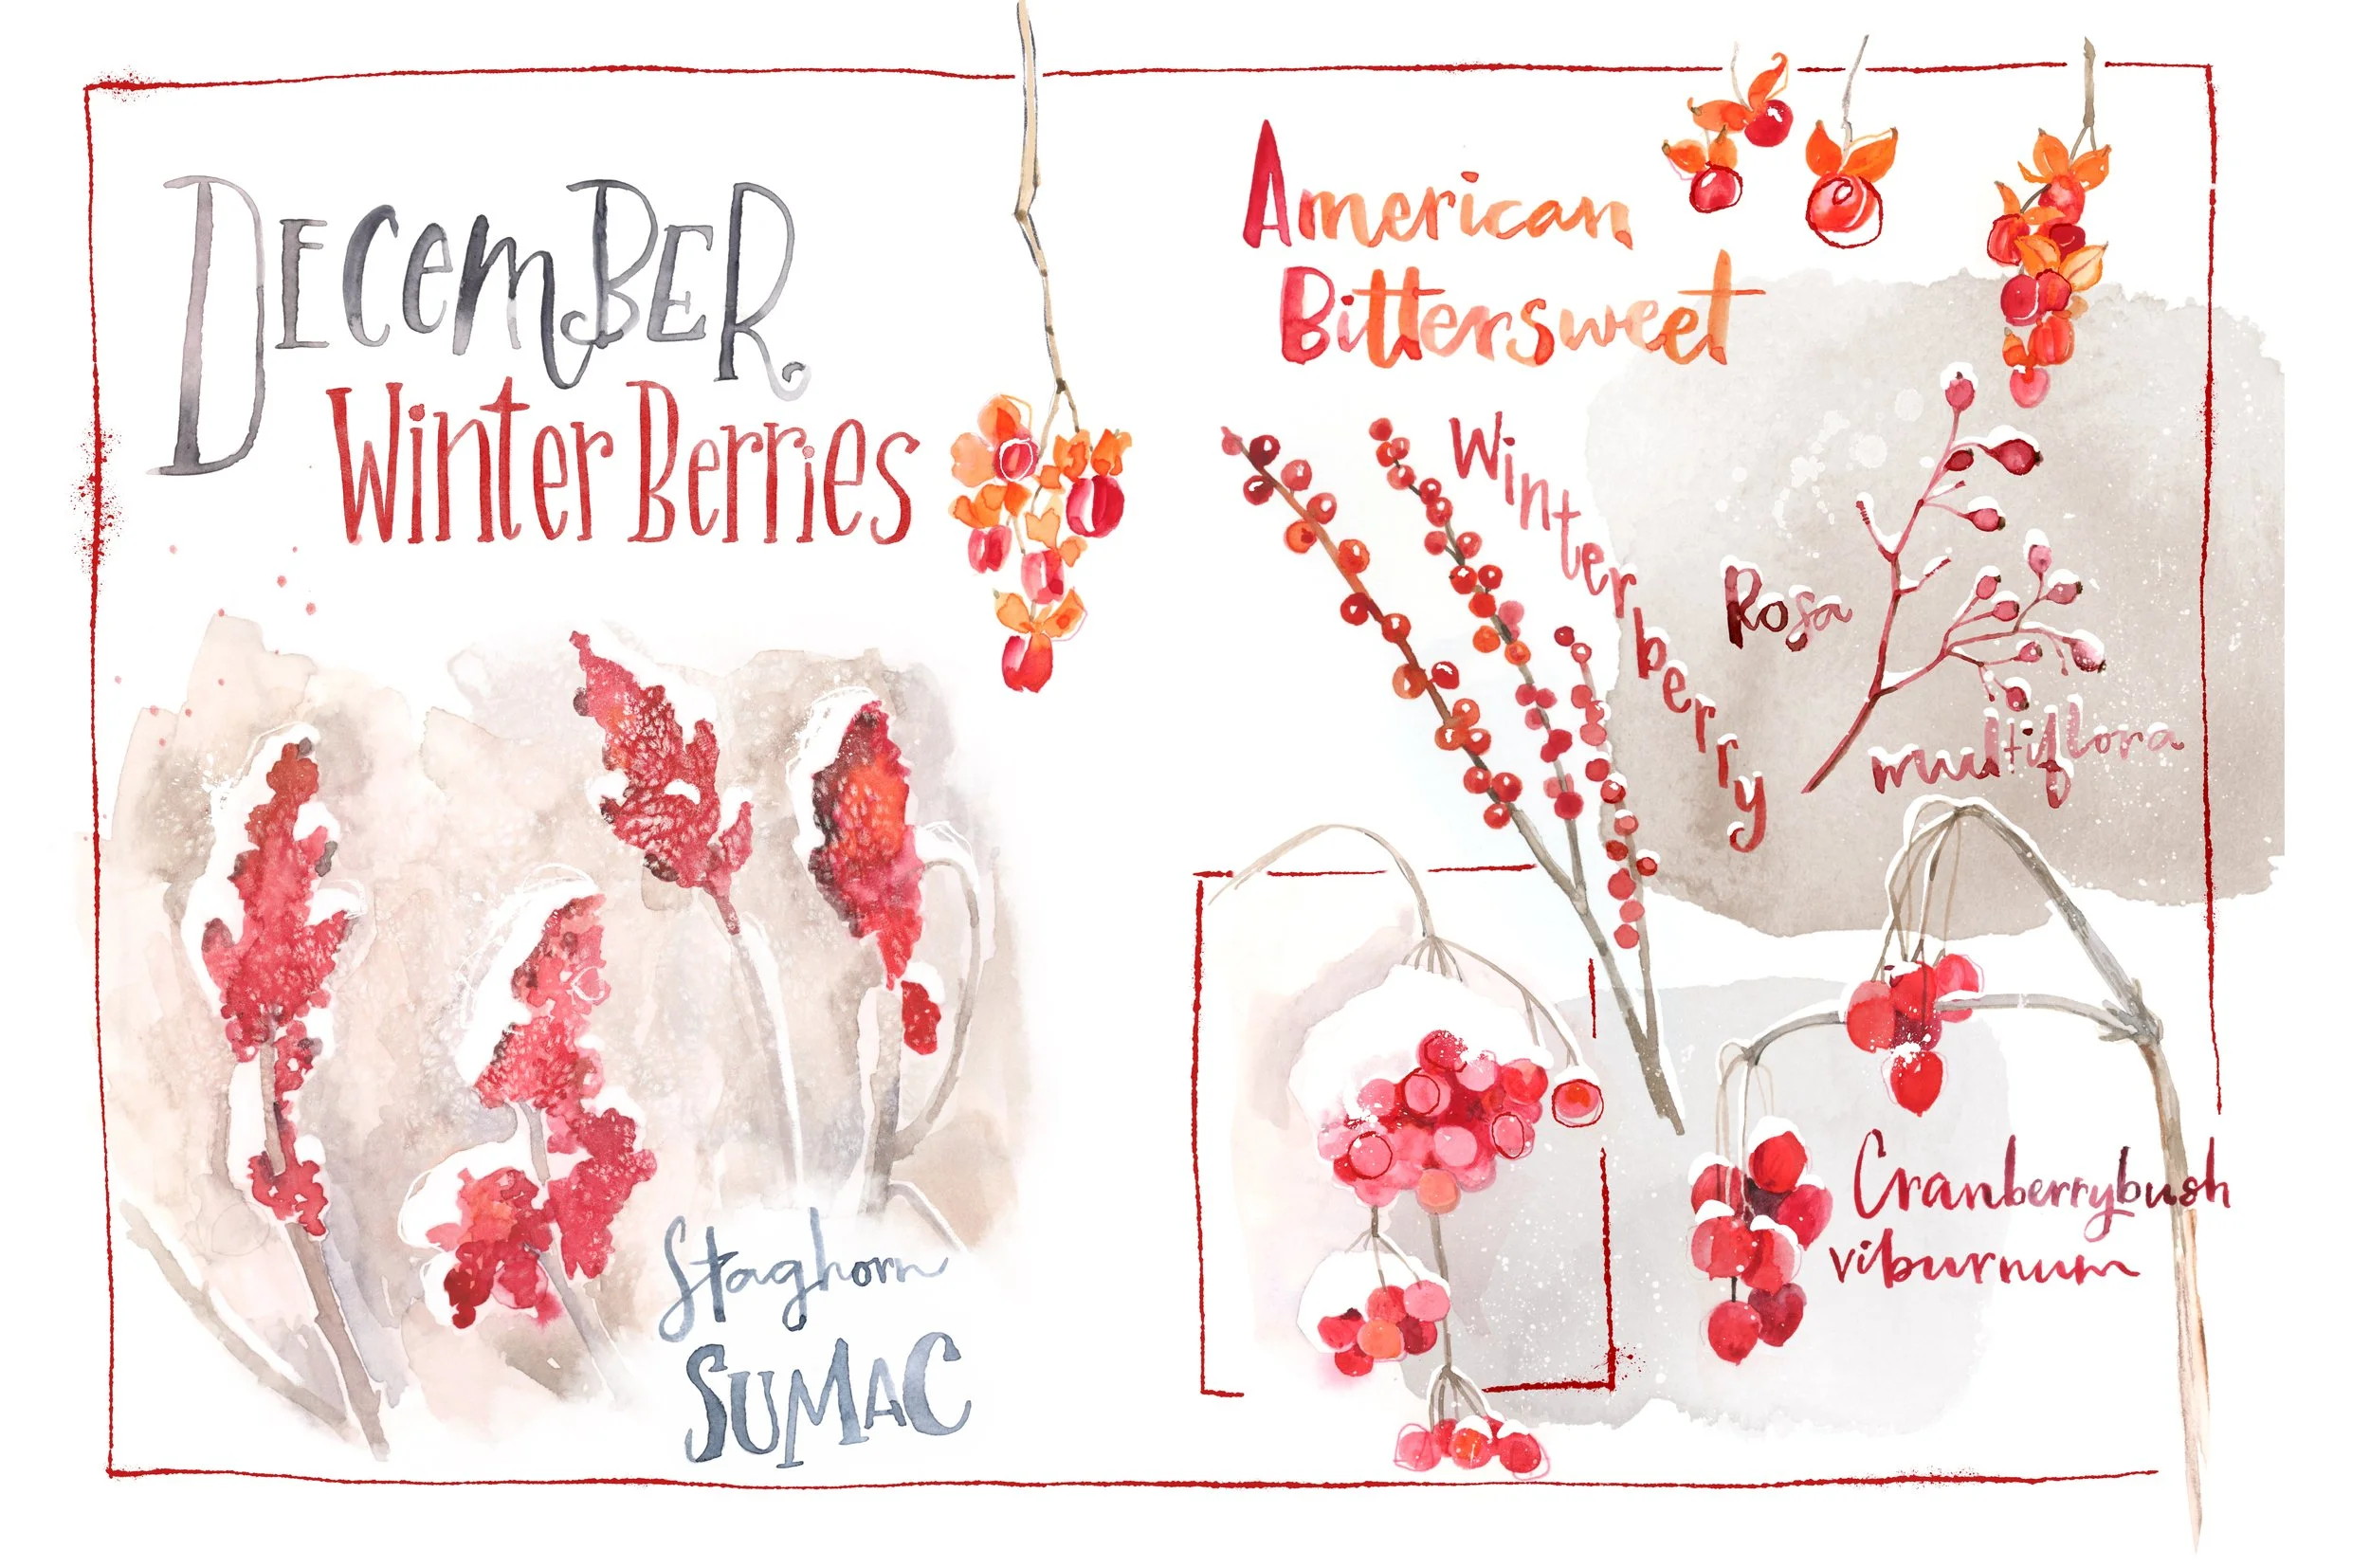 DECEMBER
Winter Berries
Staghorn
SUMAC
American
Bittersweet
Winterberry
Rosa
multiflora
Cranberrybush
viburnum